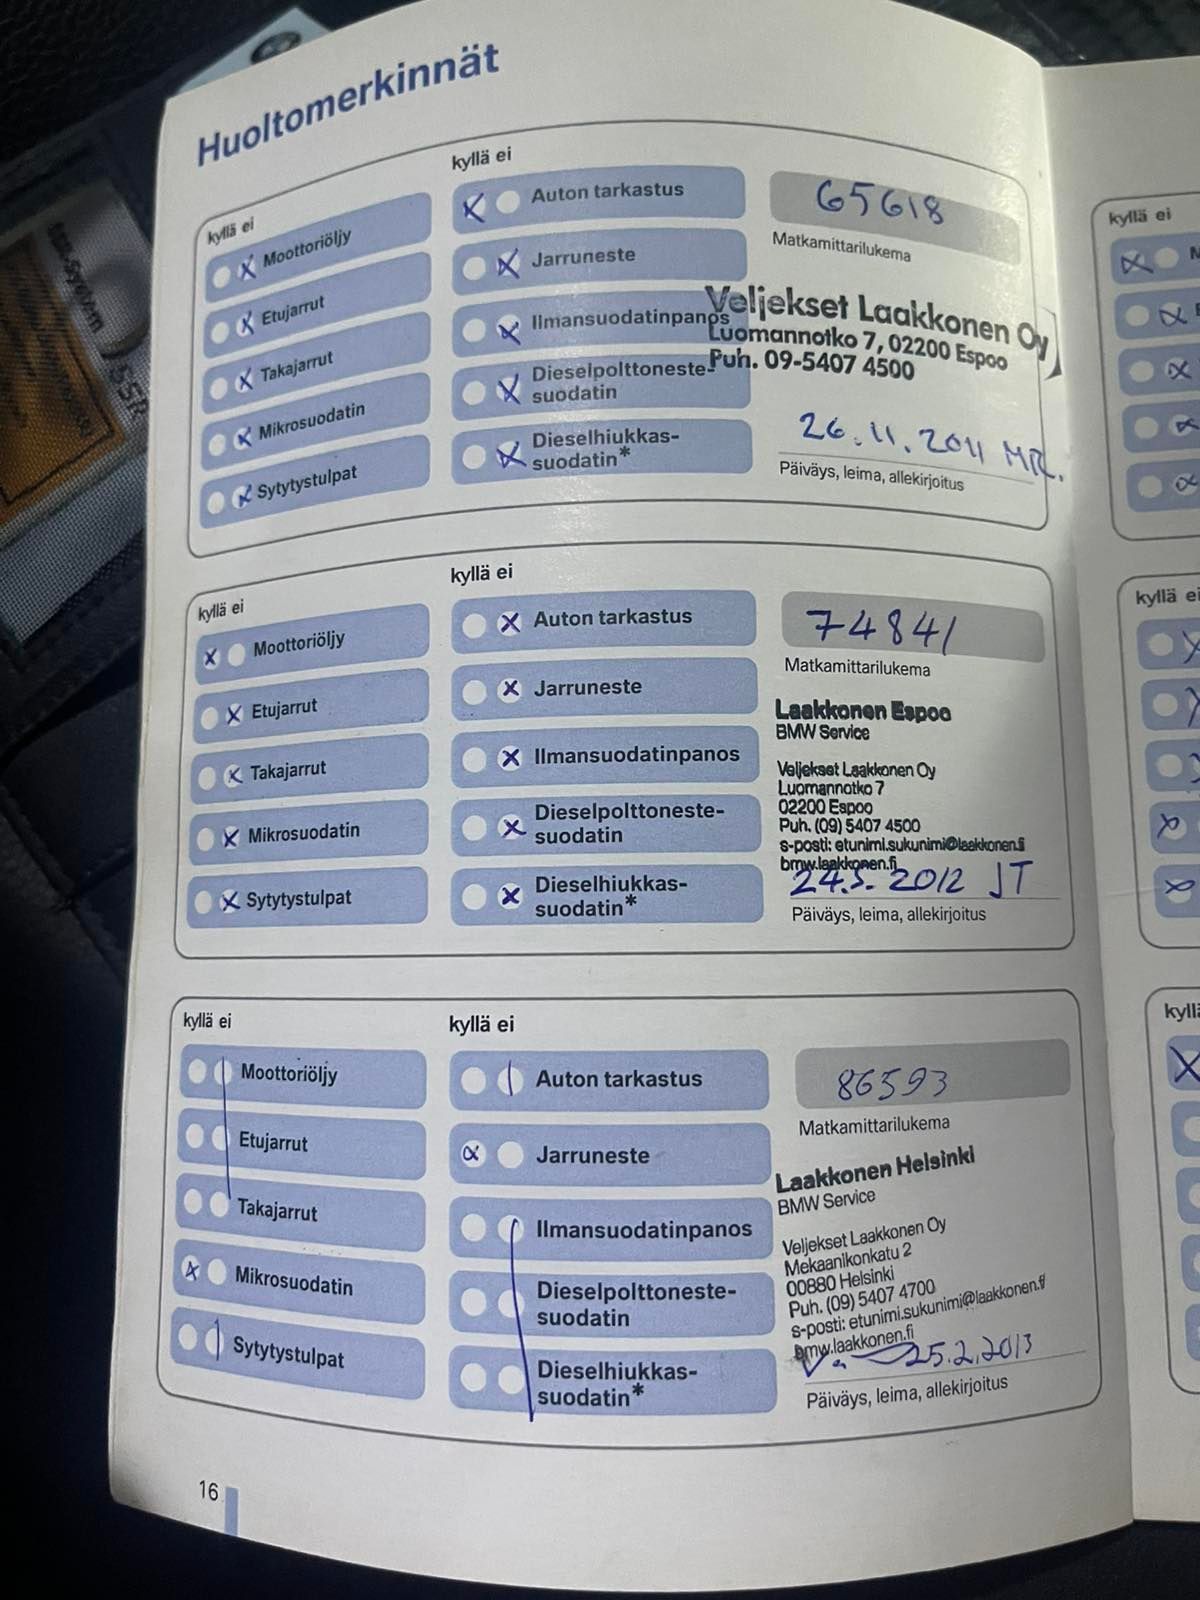 Huoltomerkinnät
kyllä ei
Moottoriöljy
Etujarrut
Takajarrut
Mikrosuodatin
Sytytystulpat
kyllä ei
Auton tarkastus
Jarruneste
Ilmansuodatinpanos
Dieselpolttoneste-
suodatin
Dieselhiukkas-
suodatin*
65618
Matkamittarilukema
Veljekset Laakkonen Oy
Luomannotko 7, 02200 Espoo
Puh. 09-5407 4500
26.11.2011 MR.
Päiväys, leima, allekirjoitus
kyllä ei
Moottoriöljy
Etujarrut
Takajarrut
Mikrosuodatin
Sytytystulpat
kyllä ei
Auton tarkastus
Jarruneste
Ilmansuodatinpanos
Dieselpolttoneste-
suodatin
Dieselhiukkas-
suodatin*
74841
Matkamittarilukema
Laakkonen Espoo
BMW Service
Veljekset Laakkonen Oy
Luomannotko 7
02200 Espoo
Puh. (09) 5407 4500
s-posti: etunimi.sukunimi@laakkonen.fi
bmw.laakkonen.fi
24.5. 2012 JT
Päiväys, leima, allekirjoitus
kyllä ei
Moottoriöljy
Etujarrut
Takajarrut
Mikrosuodatin
Sytytystulpat
kyllä ei
Auton tarkastus
Jarruneste
Ilmansuodatinpanos
Dieselpolttoneste-
suodatin
Dieselhiukkas-
suodatin*
86593
Matkamittarilukema
Laakkonen Helsinki
BMW Service
Veljekset Laakkonen Oy
Mekaanikonkatu 2
00880 Helsinki
Puh. (09) 5407 4700
s-posti: etunimi.sukunimi@laakkonen.fi
bmw.laakkonen.fi
25.2.2013
Päiväys, leima, allekirjoitus
16
kyllä ei
kyllä ei